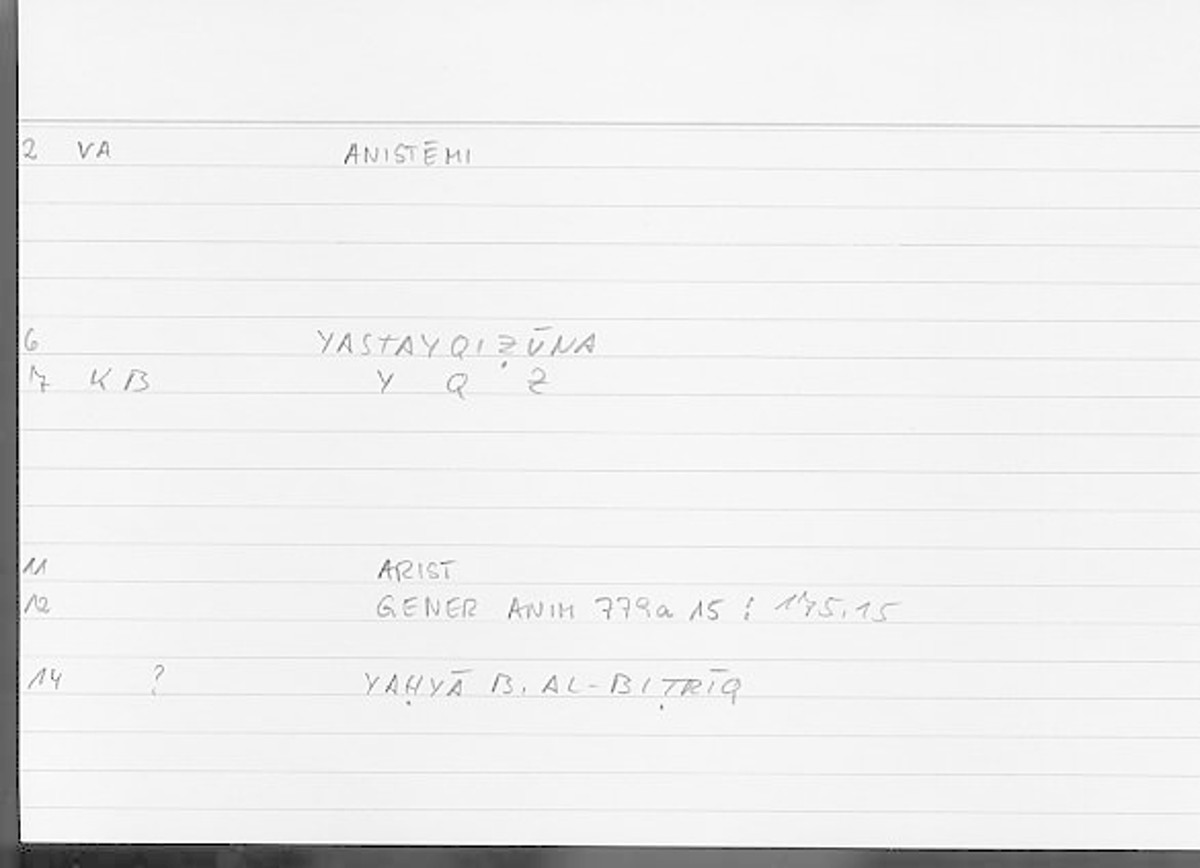 2 VA ANISTĒMI
6 YASTAYQIẒŪNA
7 KB Y Q Z
11 ARIST
12 GENER ANIM 779a 15 : 175.15
14 ? YAḤYĀ B. AL-BIṬRĪQ